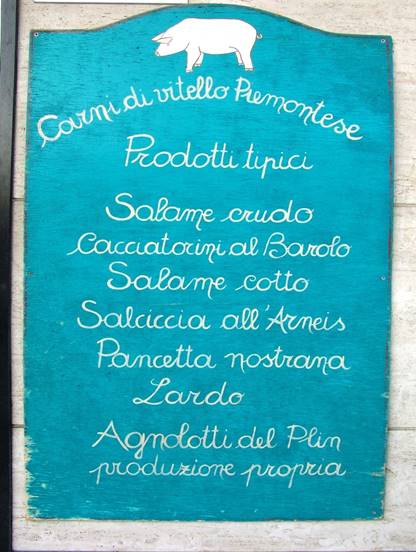 Carni di vitello Piemontese
Prodotti tipici
Salame crudo
Cacciatorini al Barolo
Salame cotto
Salciccia all'Arneis
Pancetta nostrana
Lardo
Agnolotti del Plin
produzione propria